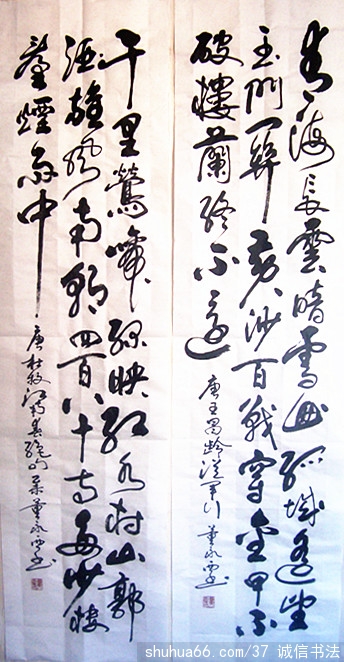 青海长雲暗雪山孤城遥望
玉門関黄沙百戰穿金甲不
破樓蘭终不还
唐王昌龄從軍行
千里鶯啼绿映红水村山郭
酒旗风南朝四百八十寺多少樓
臺煙雨中
唐杜牧江南春绝句
shuhua66.com/37 诚信书法